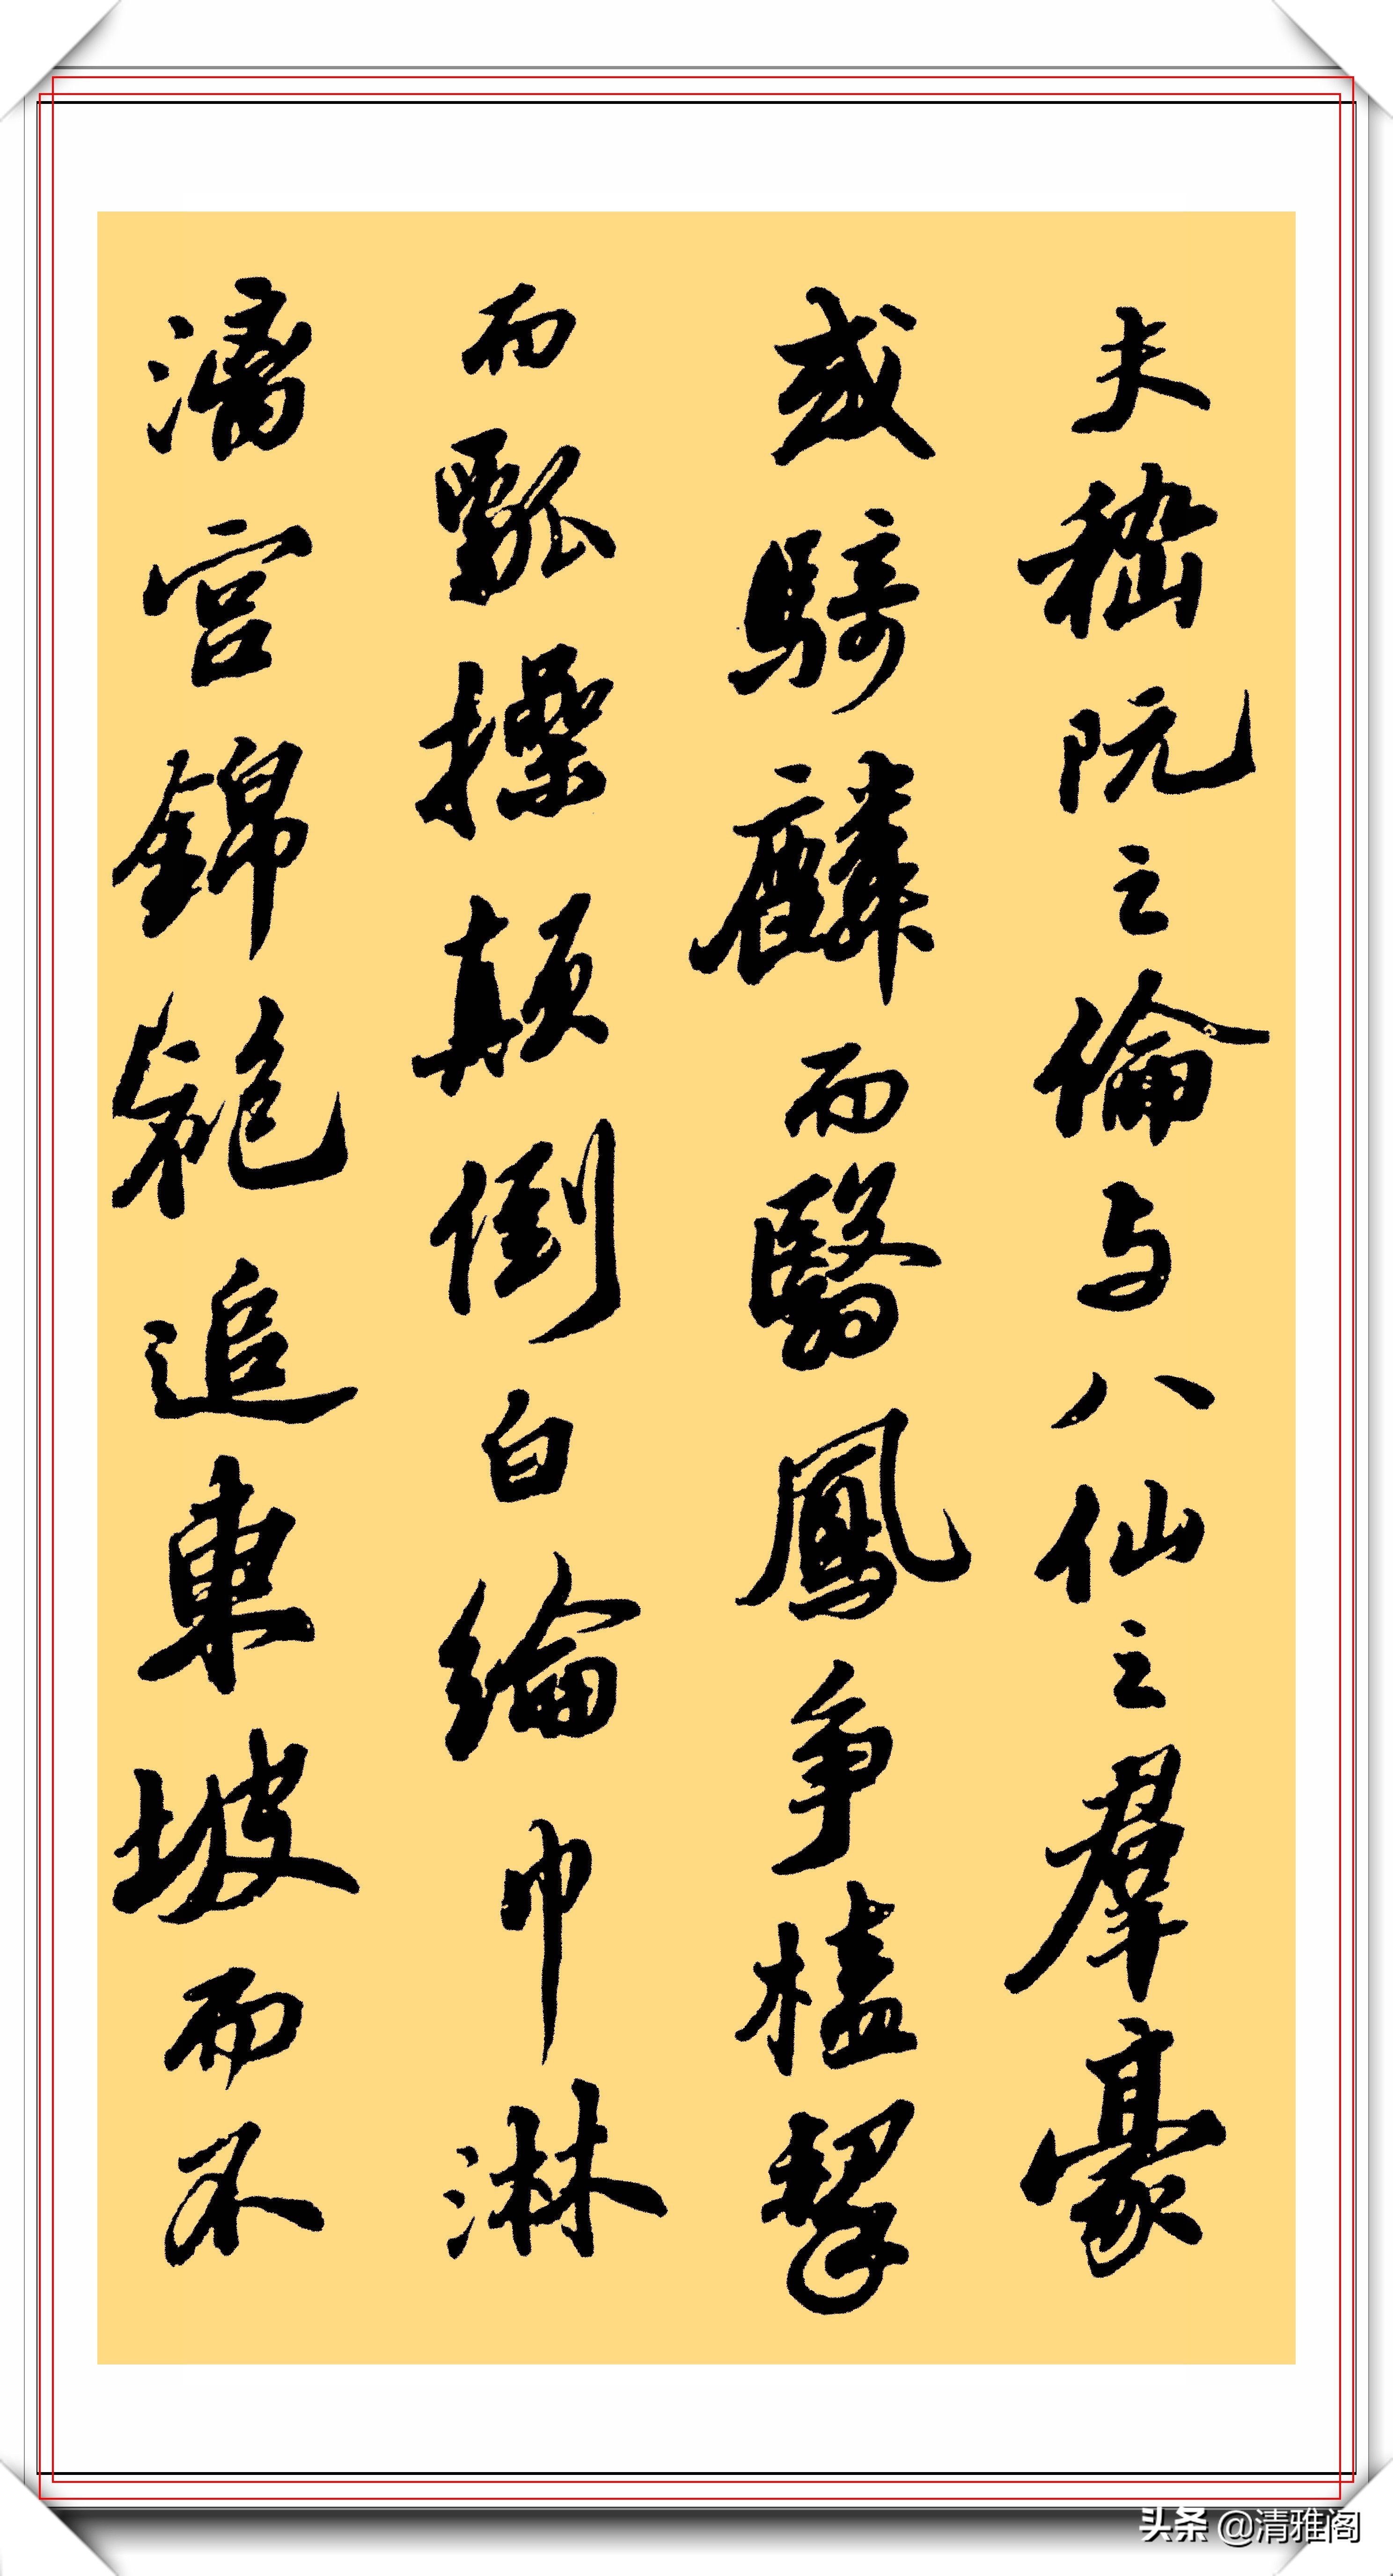 夫嵇阮之倫与八仙之羣豪
或騎麟而翳鳳争榼挈
而瓢操顛倒白綸巾淋
漓宫錦袍追東坡而不
头条 @清雅阁